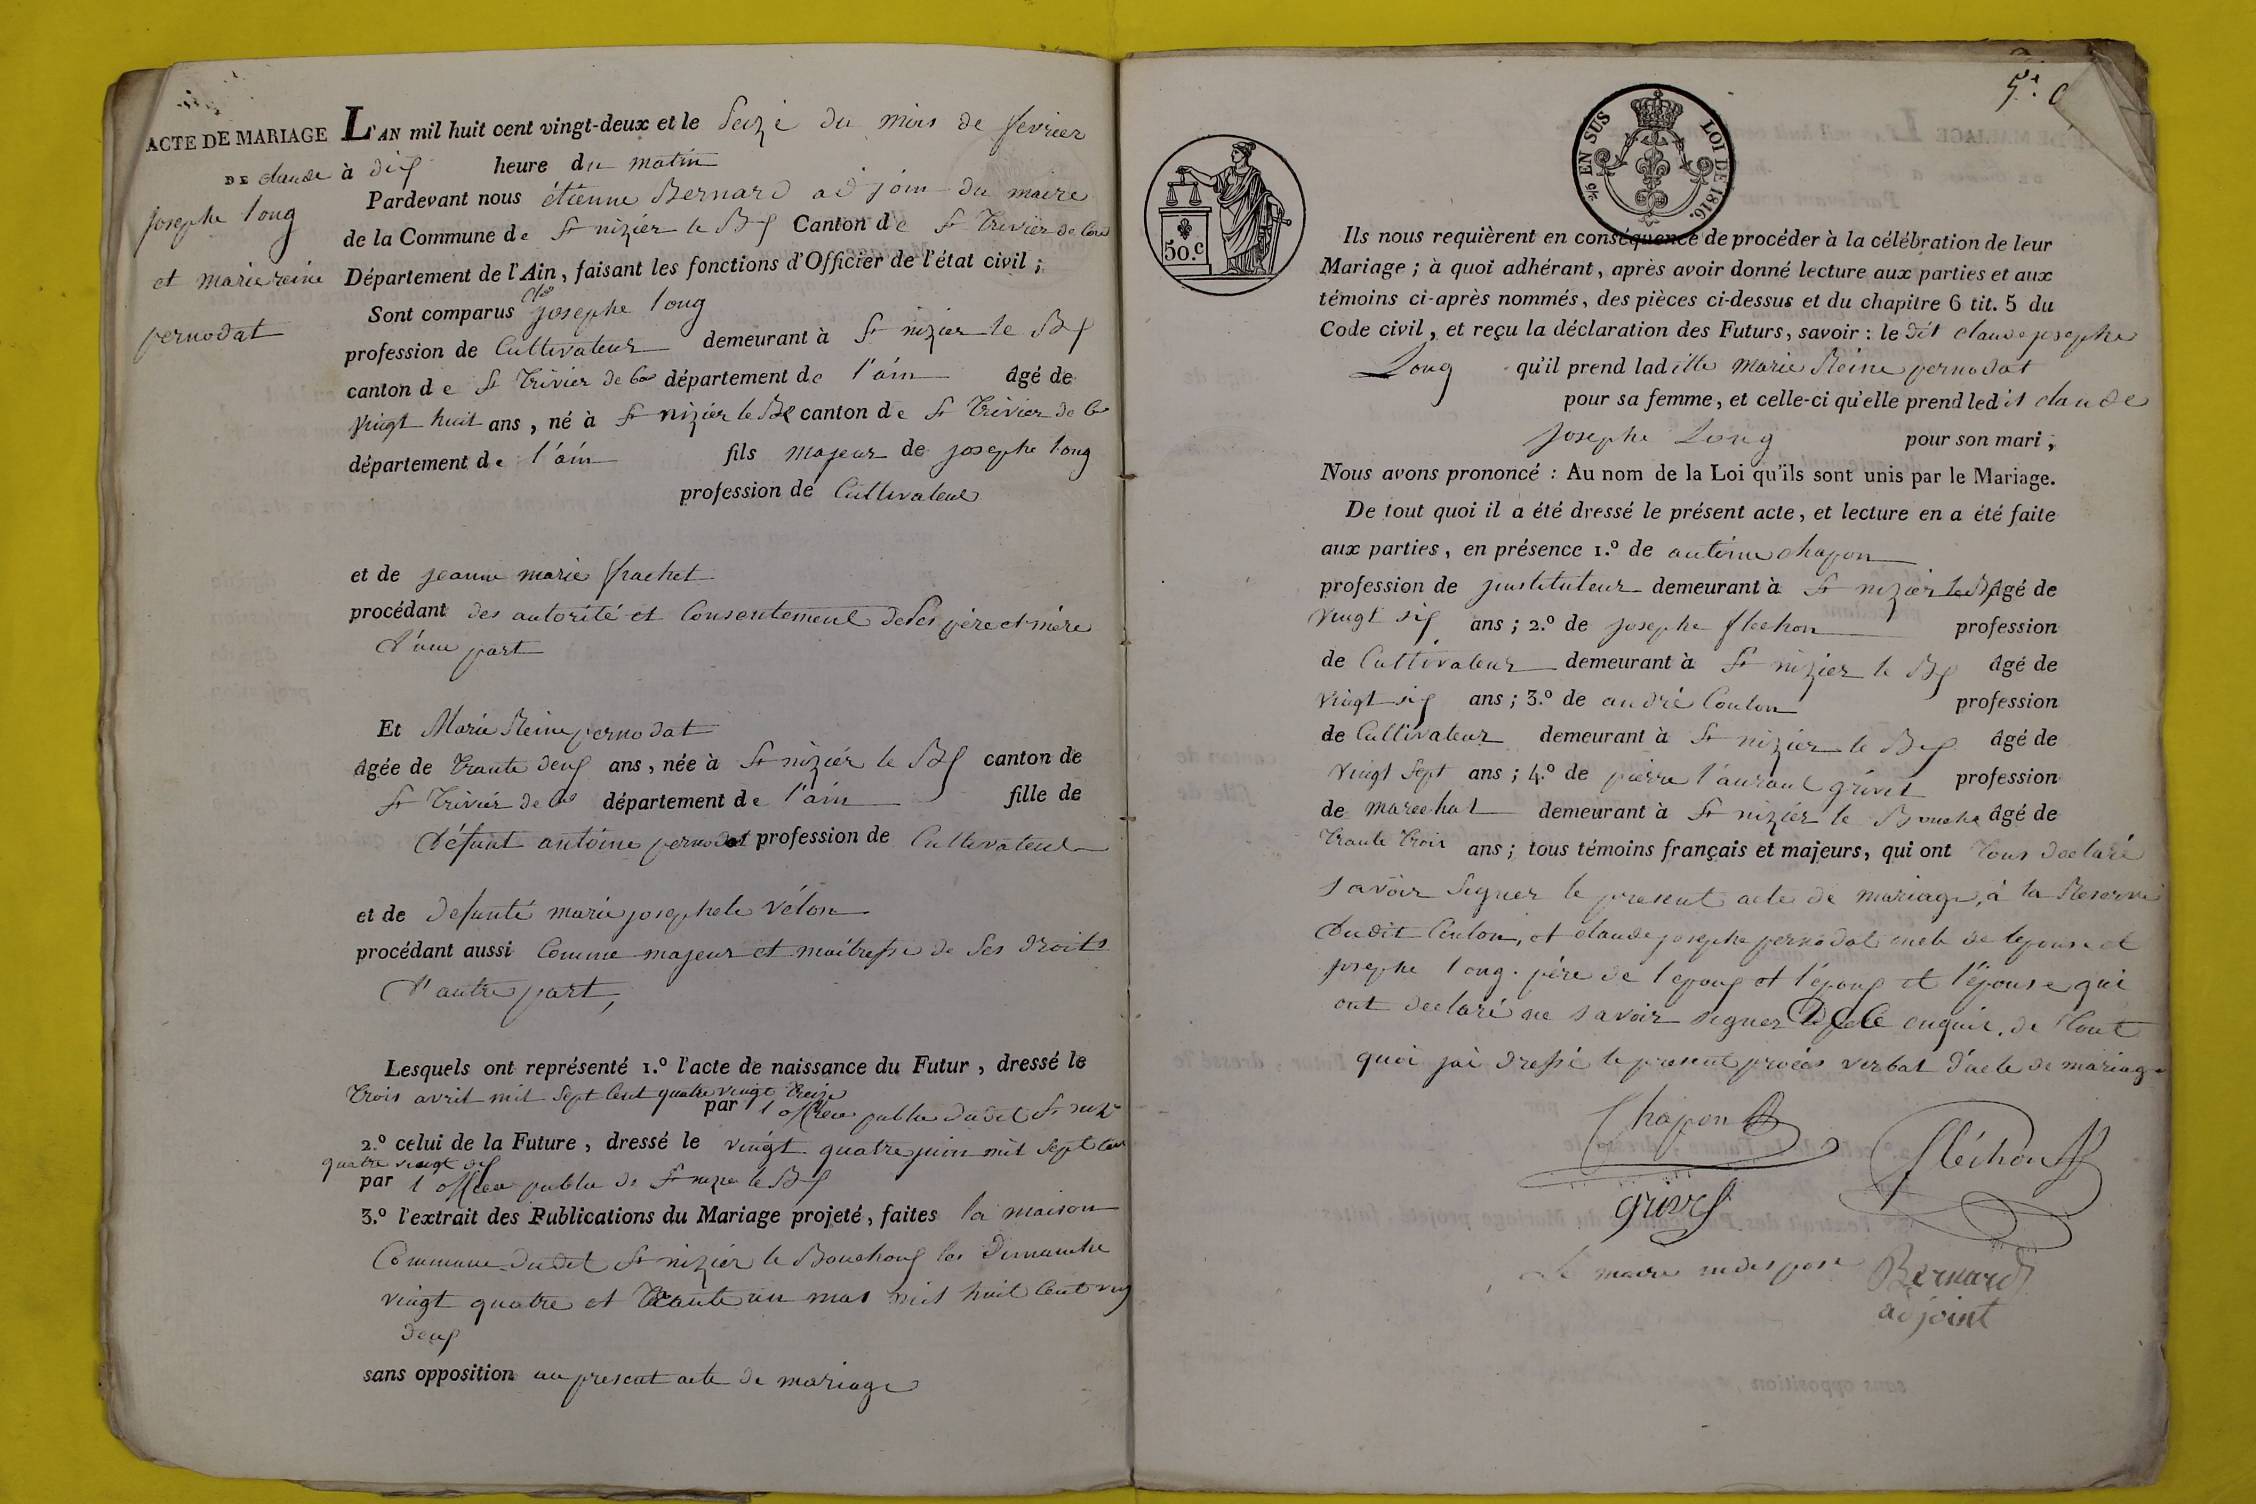 ACTE DE MARIAGE
DE claude
josephe long
et marie reine
pernodat
L'AN mil huit cent vingt-deux et le seize du mois de fevrier
à dix heure du matin
Pardevant nous étienne Bernard adjoin du maire
de la Commune de St nizier le Bx Canton de St Trivier de Cou
Département de l'Ain, faisant les fonctions d'Officier de l'état civil ;
Sont comparus Cde josephe long
profession de Cultivateur demeurant à St nizier le Bx
canton de St Trivier de Cou département de l'ain âgé de
vingt huit ans, né à St nizier le Bx canton de St Trivier de Co
département de l'ain fils majeur de josephe long
profession de Cultivateur
et de jeanne marie frachet
procédant des autorité et Consentement de ses père et mère
d'une part
Et Marie Reine pernodat
âgée de trante deux ans, née à St nizier le Bx canton de
St Trivier de Cos département de l'ain fille de
défunt antoine pernodat profession de Cultivateur
et de defunte marie josephete vélon
procédant aussi Comme majeur et maîtresse de ses droits
d'autre part,
Lesquels ont représenté 1.º l'acte de naissance du Futur, dressé le
trois avril mil sept cent quatre vingt treize
par l officier public dudit St niz
2.º celui de la Future, dressé le vingt quatre juin mil sept cen
quatre vingt dix
par l officier public de St nizier le Bx
3.º l'extrait des Publications du Mariage projeté, faites la maison
Commune dudit St nizier le Bouchoux les Dimanche
vingt quatre et trante un mas mil huit cent ving
deux
sans opposition au present acte de mariage
5.e
50.c
5/6 EN SUS LOI DE 1816.
Ils nous requièrent en conséquence de procéder à la célébration de leur
Mariage ; à quoi adhérant, après avoir donné lecture aux parties et aux
témoins ci-après nommés, des pièces ci-dessus et du chapitre 6 tit. 5 du
Code civil, et reçu la déclaration des Futurs, savoir : le dit claude josephe
Long qu'il prend laditte marie Reine pernodat
pour sa femme, et celle-ci qu'elle prend ledit claude
josephe Long pour son mari ;
Nous avons prononcé : Au nom de la Loi qu'ils sont unis par le Mariage.
De tout quoi il a été dressé le présent acte, et lecture en a été faite
aux parties, en présence 1.º de antoine chapon
profession de jnstituteur demeurant à St nizier le Bx âgé de
vingt six ans ; 2.º de josephe flechon profession
de Cultivateur demeurant à St nizier le Bx âgé de
vingt six ans ; 3.º de andré Coulon profession
de Cultivateur demeurant à St nizier le Bx âgé de
vingt sept ans ; 4.º de pierre l'aurant grivet profession
de marechal demeurant à St nizier le Bouche âgé de
trante trois ans ; tous témoins français et majeurs, qui ont tous declaré
savoir signer le present acte de mariage, à la Reserve
dudit Coulon, et claude josephe pernodat oncle de lepouse et
josephe long père de lepoux et l'époux et l'épouse qui
ont declaré ne savoir signer de ce enquis. de tout
quoi jai dressé le present procès verbal d'acte de mariage
Chapon
fléchon
grivet
Le maire indispose Bernard
adjoint